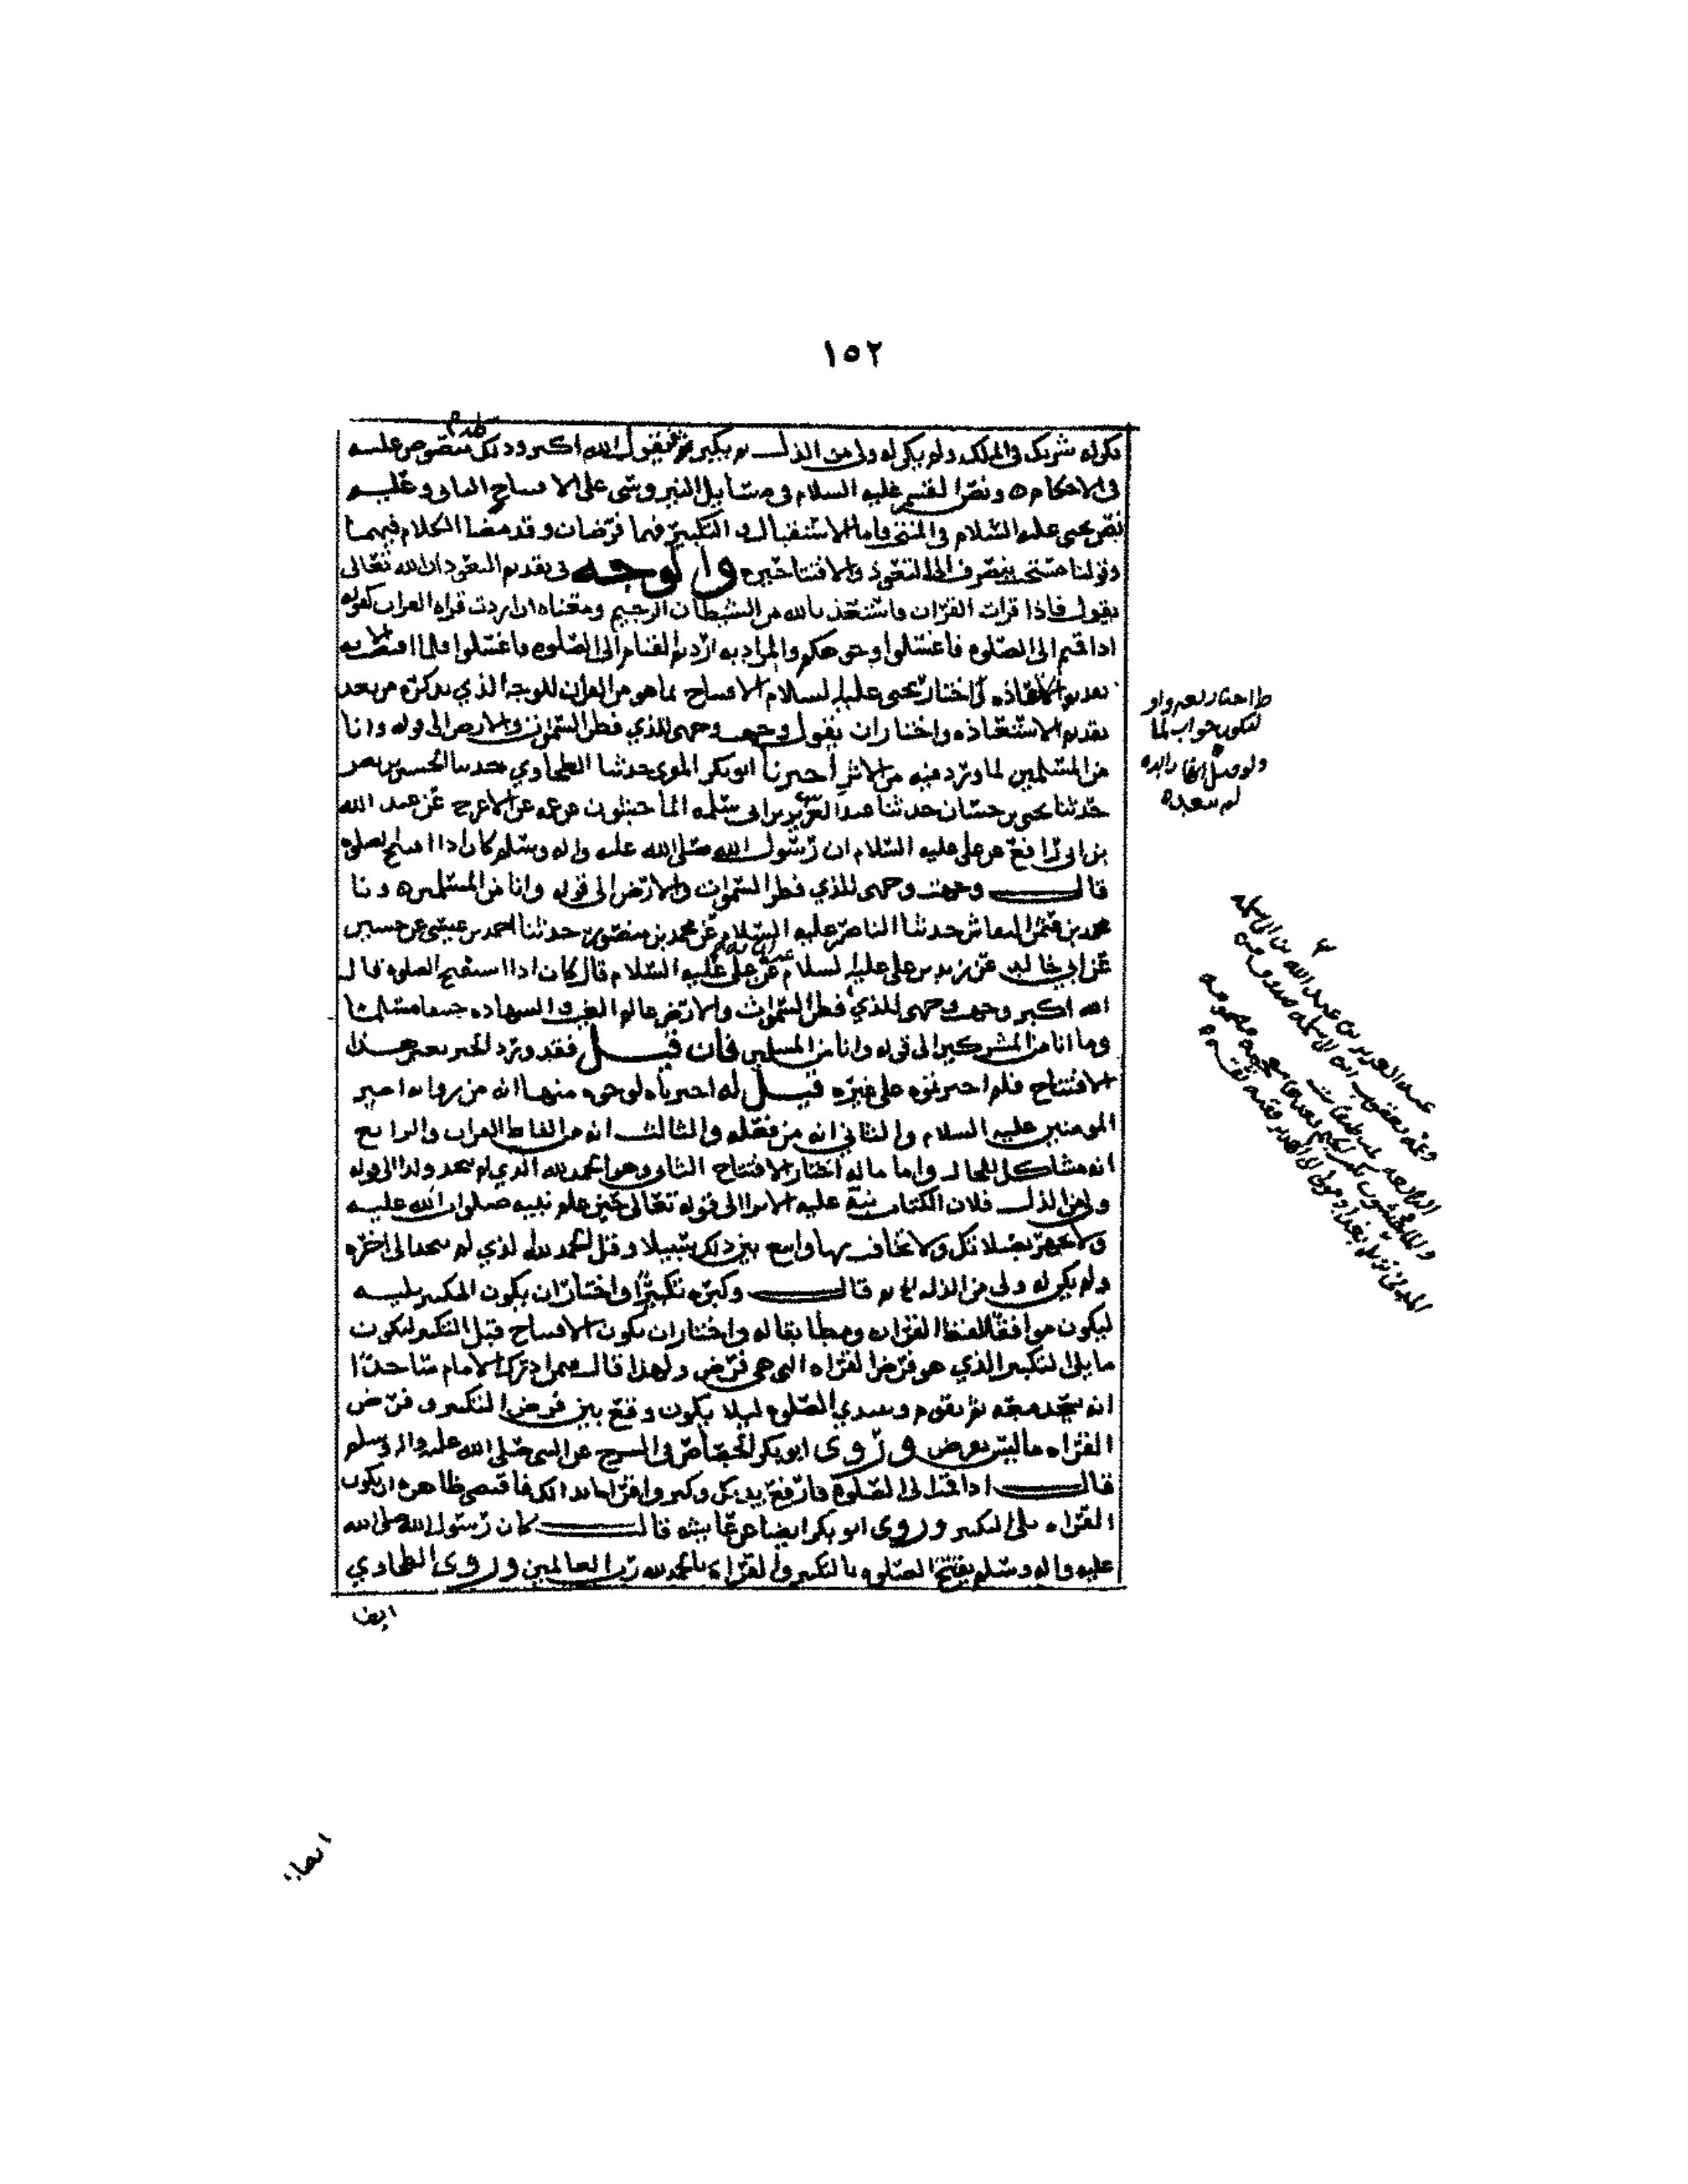 ١٥٢
يكن له شريك في الملك ولم يكن له ولي من الذل ثم يكبر ثم يقول الله اكبر وذلك منصوص عليه
في الاحكام ونص القسم عليه السلام في مسايل النيروسي على الافتتاح الثاني وعليه
نص يحيى عليه السلام في المنتخب فاما الاستقبال والتكبير فهما فرضان وقد مضا الكلام فيهما
وقولنا مستحب ينصرف الى التعوذ والافتتاحين والوجه في تقديم التعوذ ان الله تعالى
يقول فاذا قرات القران فاستعذ بالله من الشيطان الرجيم ومعناه اذا اردت قراه القران كقوله
اذا قمتم الى الصلوه فاغسلوا وجوهكم والمراد به اردتم القيام الى الصلوه فاغسلوا فلما
تقديم الاستعاذه اختار يحيى عليه السلام الافتتاح بما هو من القران للوجه الذي نذكره من بعد
تقديم الاستعاذه واختار ان يقول وجهت وجهي للذي فطر السموات والارض الى قوله وانا
من المسلمين لما ورد فيه من الاثر اخبرنا ابو بكر المقري حدثنا الطحاوي حدثنا الحسين بن نصر
حدثنا يحيى بن حسان حدثنا عبد العزيز بن ابي سلمه الماجشون عن عمه عن الاعرج عن عبيد الله
بن ابي رافع عن علي عليه السلام ان رسول الله صلى الله عليه واله وسلم كان اذا افتتح الصلوه
قال وجهت وجهي للذي فطر السموات والارض الى قوله وانا من المسلمين ونا
محمد بن عثمن النقاش حدثنا الناصر عليه السلام عن محمد بن منصور حدثنا احمد بن عيسى عن حسين
عن ابي خالد عن زيد بن علي عليه السلام عن علي عليه السلام قال كان اذا استفتح الصلوه قال
الله اكبر وجهت وجهي للذي فطر السموات والارض عالم الغيب والشهاده حنيفا مسلما
وما انا من المشركين الى قوله وانا من المسلمين فان قيل فقد ورد الخبر بغير هذا
الافتتاح فلم اخترتموه على غيره قيل له اخترناه لوجوه منها انه من روايه امير
المومنين عليه السلام والثاني انه من فعله والثالث انه من الفاظ القران والرابع
انه مشاكل للحال واما ما له اختار الافتتاح الثاني وهو الحمد لله الذي لم يتخذ ولدا الى قوله
ولي من الذل فلان الكتاب نبه عليه الا ترا الى قوله تعالى حين علم نبيه صلوات الله عليه
ولا تجهر بصلاتك ولا تخافت بها وابتغ بين ذلك سبيلا وقل الحمد لله الذي لم يتخذ الى اخره
ولم يكن له ولي من الذل ثم قال وكبره تكبيرا واختار ان يكون التكبير يليه
ليكون موافقا للفظ القران ومطابقا له واختار ان يكون الافتتاح قبل التكبير ليكون
ما يلي التكبير الذي هو فرض القراه التي هي فرض ولهذا قال فيمن ادرك الامام ساجدا
انه يسجد معه ثم يقوم ويبتدي الصلوه ليلا يكون وقع بين فرض التكبير وفرض
القراه ما ليس بفرض وروى ابو بكر الجصاص في الشرح عن النبي صلى الله عليه واله وسلم
قال اذا قمت الى الصلوة فارفع يديك وكبر واقرا ما بدا لك فاقتضى ظاهره ان يكون
القراه تلي التكبير وروى ابو بكر ايضا عن عايشه قال كان رسول الله صلى الله
عليه واله وسلم يفتتح الصلوه بالتكبير والقراه بالحمد لله رب العالمين وروى الطحاوي
ايضا
ط اختار بغير واو
لتكون جواب لما
ولو قيل انها زايده
لم يبعد
عبد العزيز بن عبد الله بن ابي سلمه
وعمه يعقوب ابن ابي سلمه صدوق من
الرابعه